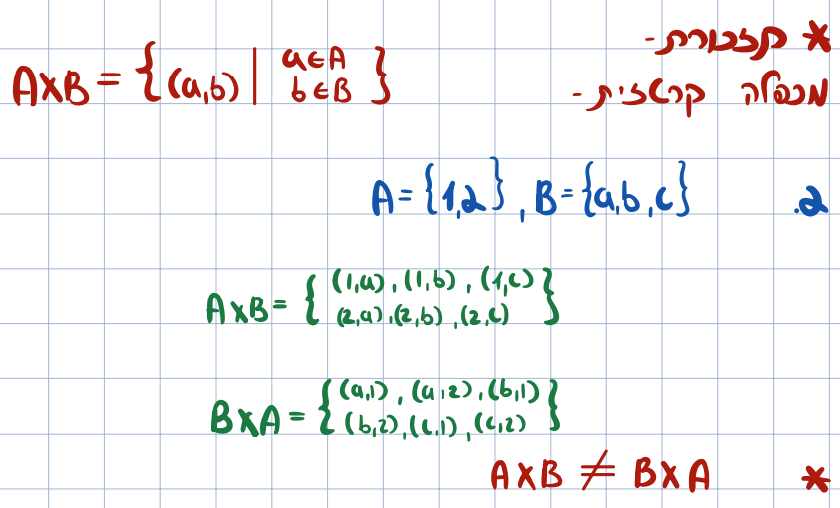 * תזכורת-
מכפלה קרטזית-
A×B = { (a,b) | a∈A
b∈B }
.2 A={1,2} , B={a,b,c}
A×B= { (1,a) , (1,b) , (1,c)
(2,a) ,(2,b) ,(2,c) }
B×A = { (a,1) , (a,2) , (b,1)
(b,2) ,(c,1) , (c,2) }
* A×B ≠ B×A